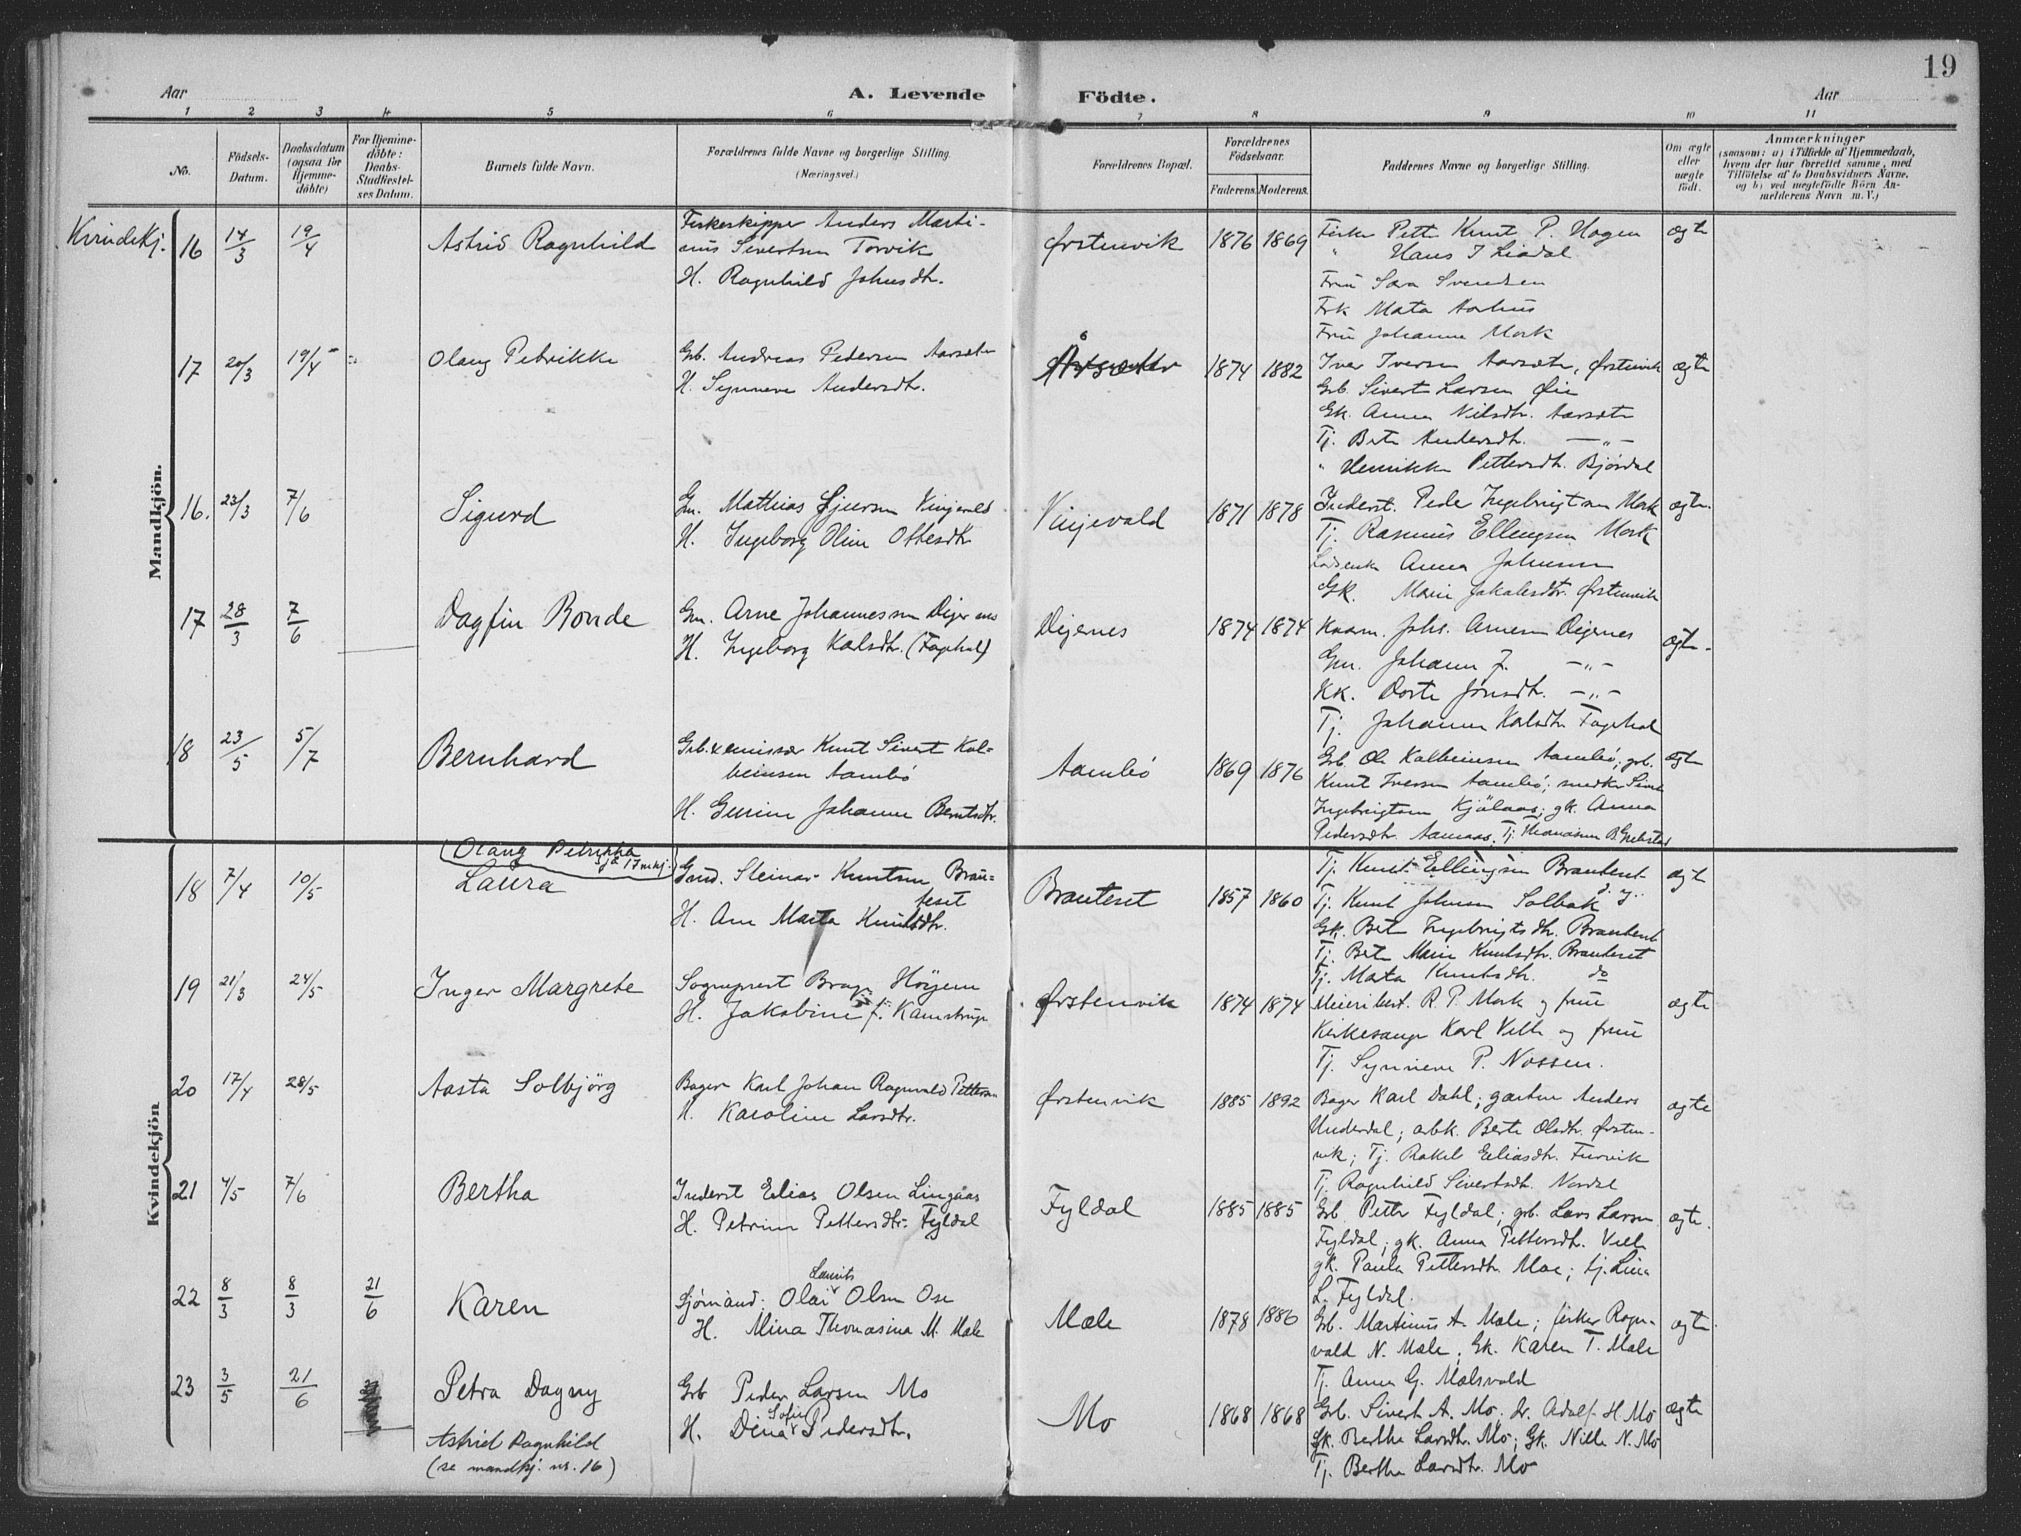 19
Aar
A. Levende Födte.
Aar
1 2 3 4 5 6 7 8 9 10 11
No.
Födsels-Datum.
Daabsdatum (ogsaa for Hjemmedöbte)
For Hjemmedöbte: Daabs-Stadfæstelses Datum.
Barnets fulde Navn.
Forældrenes fulde Navne og borgerlige Stilling. (Næringsvei.)
Forældrenes Bopæl.
Forældrenes Födselsaar.
Faderens. Moderens.
Faddernes Navne og borgerlige Stilling.
Om ægte eller uægte födt.
Anmærkninger
(saasom: a) i Tilfælde af Hjemmedaab, hvem der har forrettet samme, med Tilföielse af to Daabsvidners Navne, og b) ved uægtefödte Börn Anmelderens Navn m. V.)
Mandkjön.
Kvindekj. 16 14/3 19/4 Astrid Ragnhild
Fiskeskipper Anders Marti-
nus Sivertsen Torvik
H. Ragnhild Johnsdtr.
Ørstenvik 1876 1869
Fisker Petter Knut P. Hagen
" Hans J Liadal
Fru Sara Svendsen
Frk Mata Aarhus
Fru Johanne Mork
ægte
17 20/3 19/4 Olaug Petrikke
Grb. Andreas Pedersen Aarsæter
H. Synneve Andersdtr.
Årsæter 1874 1882
Iver Iversen Aarsæter, Ørstenvik
Grb. Sivert Larsen Øie
Gk. Anna Nilsdtr. Aarsæter
Tj. Berte Andersdtr. —"—
" Henrikke Pettersdtr. Bjørdal
ægte
16. 23/3 7/6 Sigurd
Gm. Mathias Sjursen Vinjevold
H. Ingeborg Oline Ottesdtr
Vinjevold 1871 1878
Inderst. Peder Ingebrigtsen Mork
Tj. Rasmus Ellingsen Mork
Anna Johnsen
Gk. Marie Jakobsdtr. Ørstenvik
ægte.
17 28/3 7/6 Dagfin Ronde
Gm. Arne Johannessen Digernes
H. Ingeborg Karlsdtr. (Fagerhol)
Digernes 1874 1874
Kaarm. Johs. Arnesen Digernes
Gm. Johann J. —"—
Kk. Dorte Jonsdtr. —"—
Tj. Johanne Karlsdtr Fagerhol
ægte.
18 23/5 5/7 Bernhard
Grb. & emissær Knut Sivert Kol-
beinsen Aambø
H. Gurine Johanne Berntsdtr.
Aambø 1869 1876
Grb. Ole Kolbeinsen Aambø; grb.
Knut Iversen Aambø; snedker Sivert
Ingebrigtsen Kjölaas; gk. Anna
Pedersdtr. Aamaas. Tj. Thomasine B. Grebstad
ægte
Kvindekjön
Olaug Petrikka
sjå 17 mkj.
18 7/4 10/5 Laura
Grud. Steinar Knutsen Brau-
teset
H. Ane Marta Knutsdtr.
Brauteset 1857 1860
Tj. Knut Ellingsen Brauteset
Tj. Knut Johnsen Solbak d. y.
Gk. Berte Ingebrigtsdtr. Brauteset
Tj. Berte Marie Knutsdtr. Brauteset
Tj. Marta Knutsdtr. do
ægte
19 21/3 24/5 Inger Margrete
Sogneprest Brage Höyem
H. Jakobine f. Kamstrup
Ørstenvik 1874 1874
Meieribest. R. P. Mork og frue
Kirkesanger Karl Velle og frue
Tj. Synneve P. Nossen.
ægte
20 17/4 28/5 Aasta Solbjørg
Bager Karl Johan Ragnvald Pettersen
H. Karoline Larsdtr.
Ørstenvik 1885 1892
Bager Karl Dahl; gartner Anders
Underdal; abk. Berte Olsdtr. Ørsten-
vik; Tj. Rakel Eliasdtr. Furvik
Tj. Ragnhild Sivertsdtr. Nordal
ægte
21 4/5 7/6 Bertha
Inderst Elias Olsen Lingaas
H. Petrine Pettersdtr. Fyldal
Fyldal 1885 1885
Grb. Petter Fyldal; grb. Lars Larsen
Fyldal; gk. Anna Pettersdtr. Velle
gk. Paula Pettersdtr. Moe; tj. Lina
L. Fyldal.
ægte.
22 8/3 8/3 21/6 Karen
Laurits
Sjömand. Olai Olsen Ose
H. Mina Thomasina M. Mæle
Mæle 1878 1886
Grb. Martinus A. Mæle; fisker Ragn-
vald N. Mæle; Gk. Karen T. Mæle
Tj. Anna G. Mælsvold
ægte.
23 3/5 21/6 Petra Dagny
Grb Peder Larsen Mo
Sofie
H. Dina Pedersdtr.
Mo 1868 1868
Grb. Sivert A. Mo; Adolf H. Mo
Gk. Berthe Larsdtr. Mo; Gk. Nille N. Mo
Tj. Bertha Larsdtr. Mo
ægte
Astrid Ragnhild
(se mandkj. nr. 16)